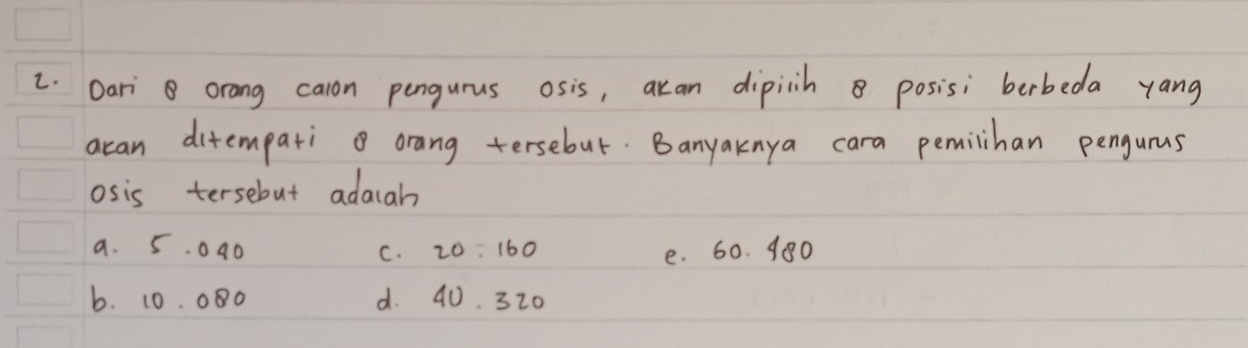 2. Dari 8 orang calon pengurus osis, akan dipilih 8 posisi berbeda yang
akan ditempati 8 orang tersebut. Banyaknya cara pemilihan pengurus
osis tersebut adalah
a. 5.040 c. 20.160 e. 60.480
b. 10.080 d. 40.320